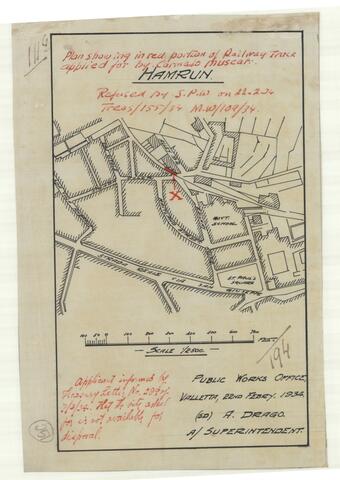 Plan showing in red portion of Railway Track
applied for by Carmelo Muscat.
HAMRUN.
Refused by S.P.W on 22.2.34
Treas/155/34 M.W/109/34.
GOVT.
SCHOOL
ST. PAUL'S
SQUARE
100 50 0 100 200 300 400 500 600 700 FEET.
SCALE 1/2500
194
Applicant informed by
Treasury letter No.
that the site asked
for is not available for
disposal.
PUBLIC WORKS OFFICE,
VALLETTA, 22ND FEBRY. 1934.
(SD) A. DRAGO.
A/ SUPERINTENDENT.